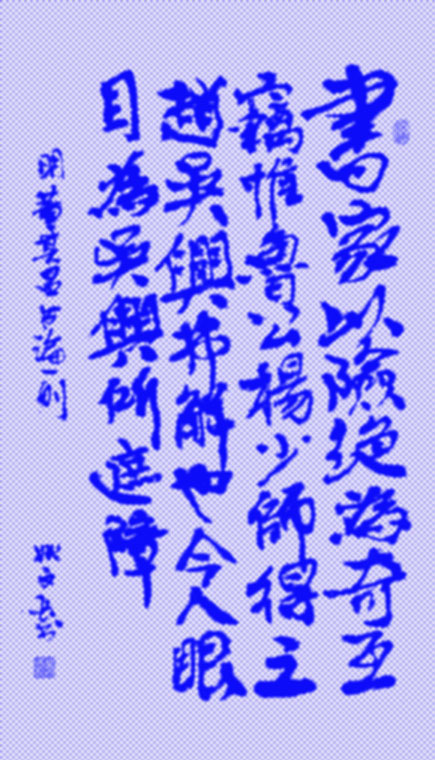 書家以險絕為奇
惟魯公楊少師得
趙吳興弗解也今人眼
目為吳興所遮障
明董其昌書論一則